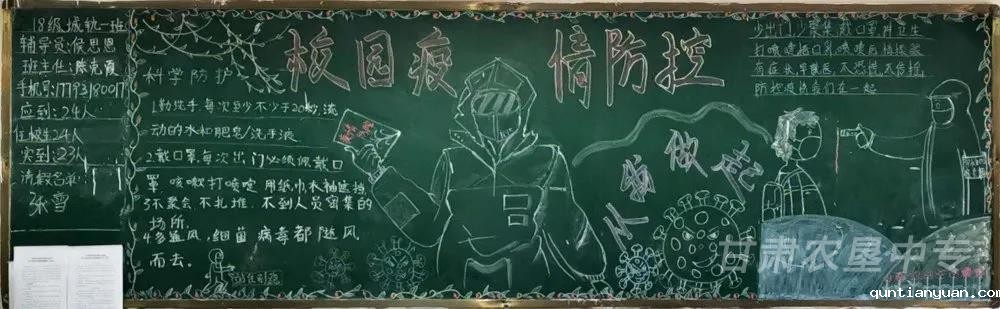 18级城轨一班
辅导员:侯思恩
班主任:陈克霞
应到:24人
在校生24人
实到:23人
请假名单
张雪
校园疫情防控
科学防护
1.勤洗手每次至少不少于20秒,流
动的水和肥皂/洗手液
2.戴口罩每次出门必须佩戴口
罩 咳嗽打喷嚏 用纸巾衣袖遮挡
3不聚会 不扎堆,不到人员密集的
场所。
4多通风,细菌 病毒都随风
而去。
从我做起
少出门,少聚集 戴口罩 讲卫生
有症状,早就医,不恐慌,不信谣,
防控疫情我们在一起
甘肃农垦中专
quntianyuan.com